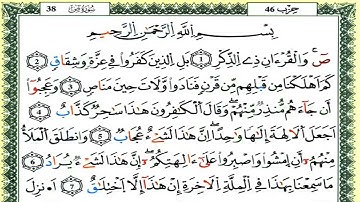 38 سورة ص حزب 46
بِسْمِ اِ۬للَّهِ اِ۬لرَّحْمَٰنِ اِ۬لرَّحِيمِ
صَٓ وَالْقُرْءَانِ ذِے اِ۬لذِّكْرِ 1 بَلِ اِ۬لذِينَ كَفَرُواْ فِے عِزَّةٖ وَشِقَاقٖ 2
كَمَ اَهْلَكْنَا مِن قَبْلِهِم مِّن قَرْنٖ فَنَادَواْ وَّلَاتَ حِينَ مَنَاصٖ 3 وَعَجِبُوٓاْ
أَن جَآءَهُم مُّنذِرٞ مِّنْهُمْ وَقَالَ اَ۬لْكَٰفِرُونَ هَٰذَا سَٰحِرٞ كَذَّابٌ 4
اَجَعَلَ اَ۬لَالِهَةَ إِلَٰهاٗ وَٰحِداً اِنَّ هَٰذَا لَشَےْءٌ عُجَابٞ 5 وَانطَلَقَ اَ۬لْمَلَأُ
مِنْهُمُۥٓ أَنِ اِ۪مْشُواْ وَاصْبِرُواْ عَلَىٰٓ ءَالِهَتِكُمُۥٓ إِنَّ هَٰذَا لَشَےْءٞ يُرَادُ 6
مَا سَمِعْنَا بِهَٰذَا فِے اِ۬لْمِلَّةِ اِ۬لَاخِرَةِ إِنْ هَٰذَآ إِلَّا اَ۪خْتِلَٰقٌ 7 اَ۟ءُنزِلَ